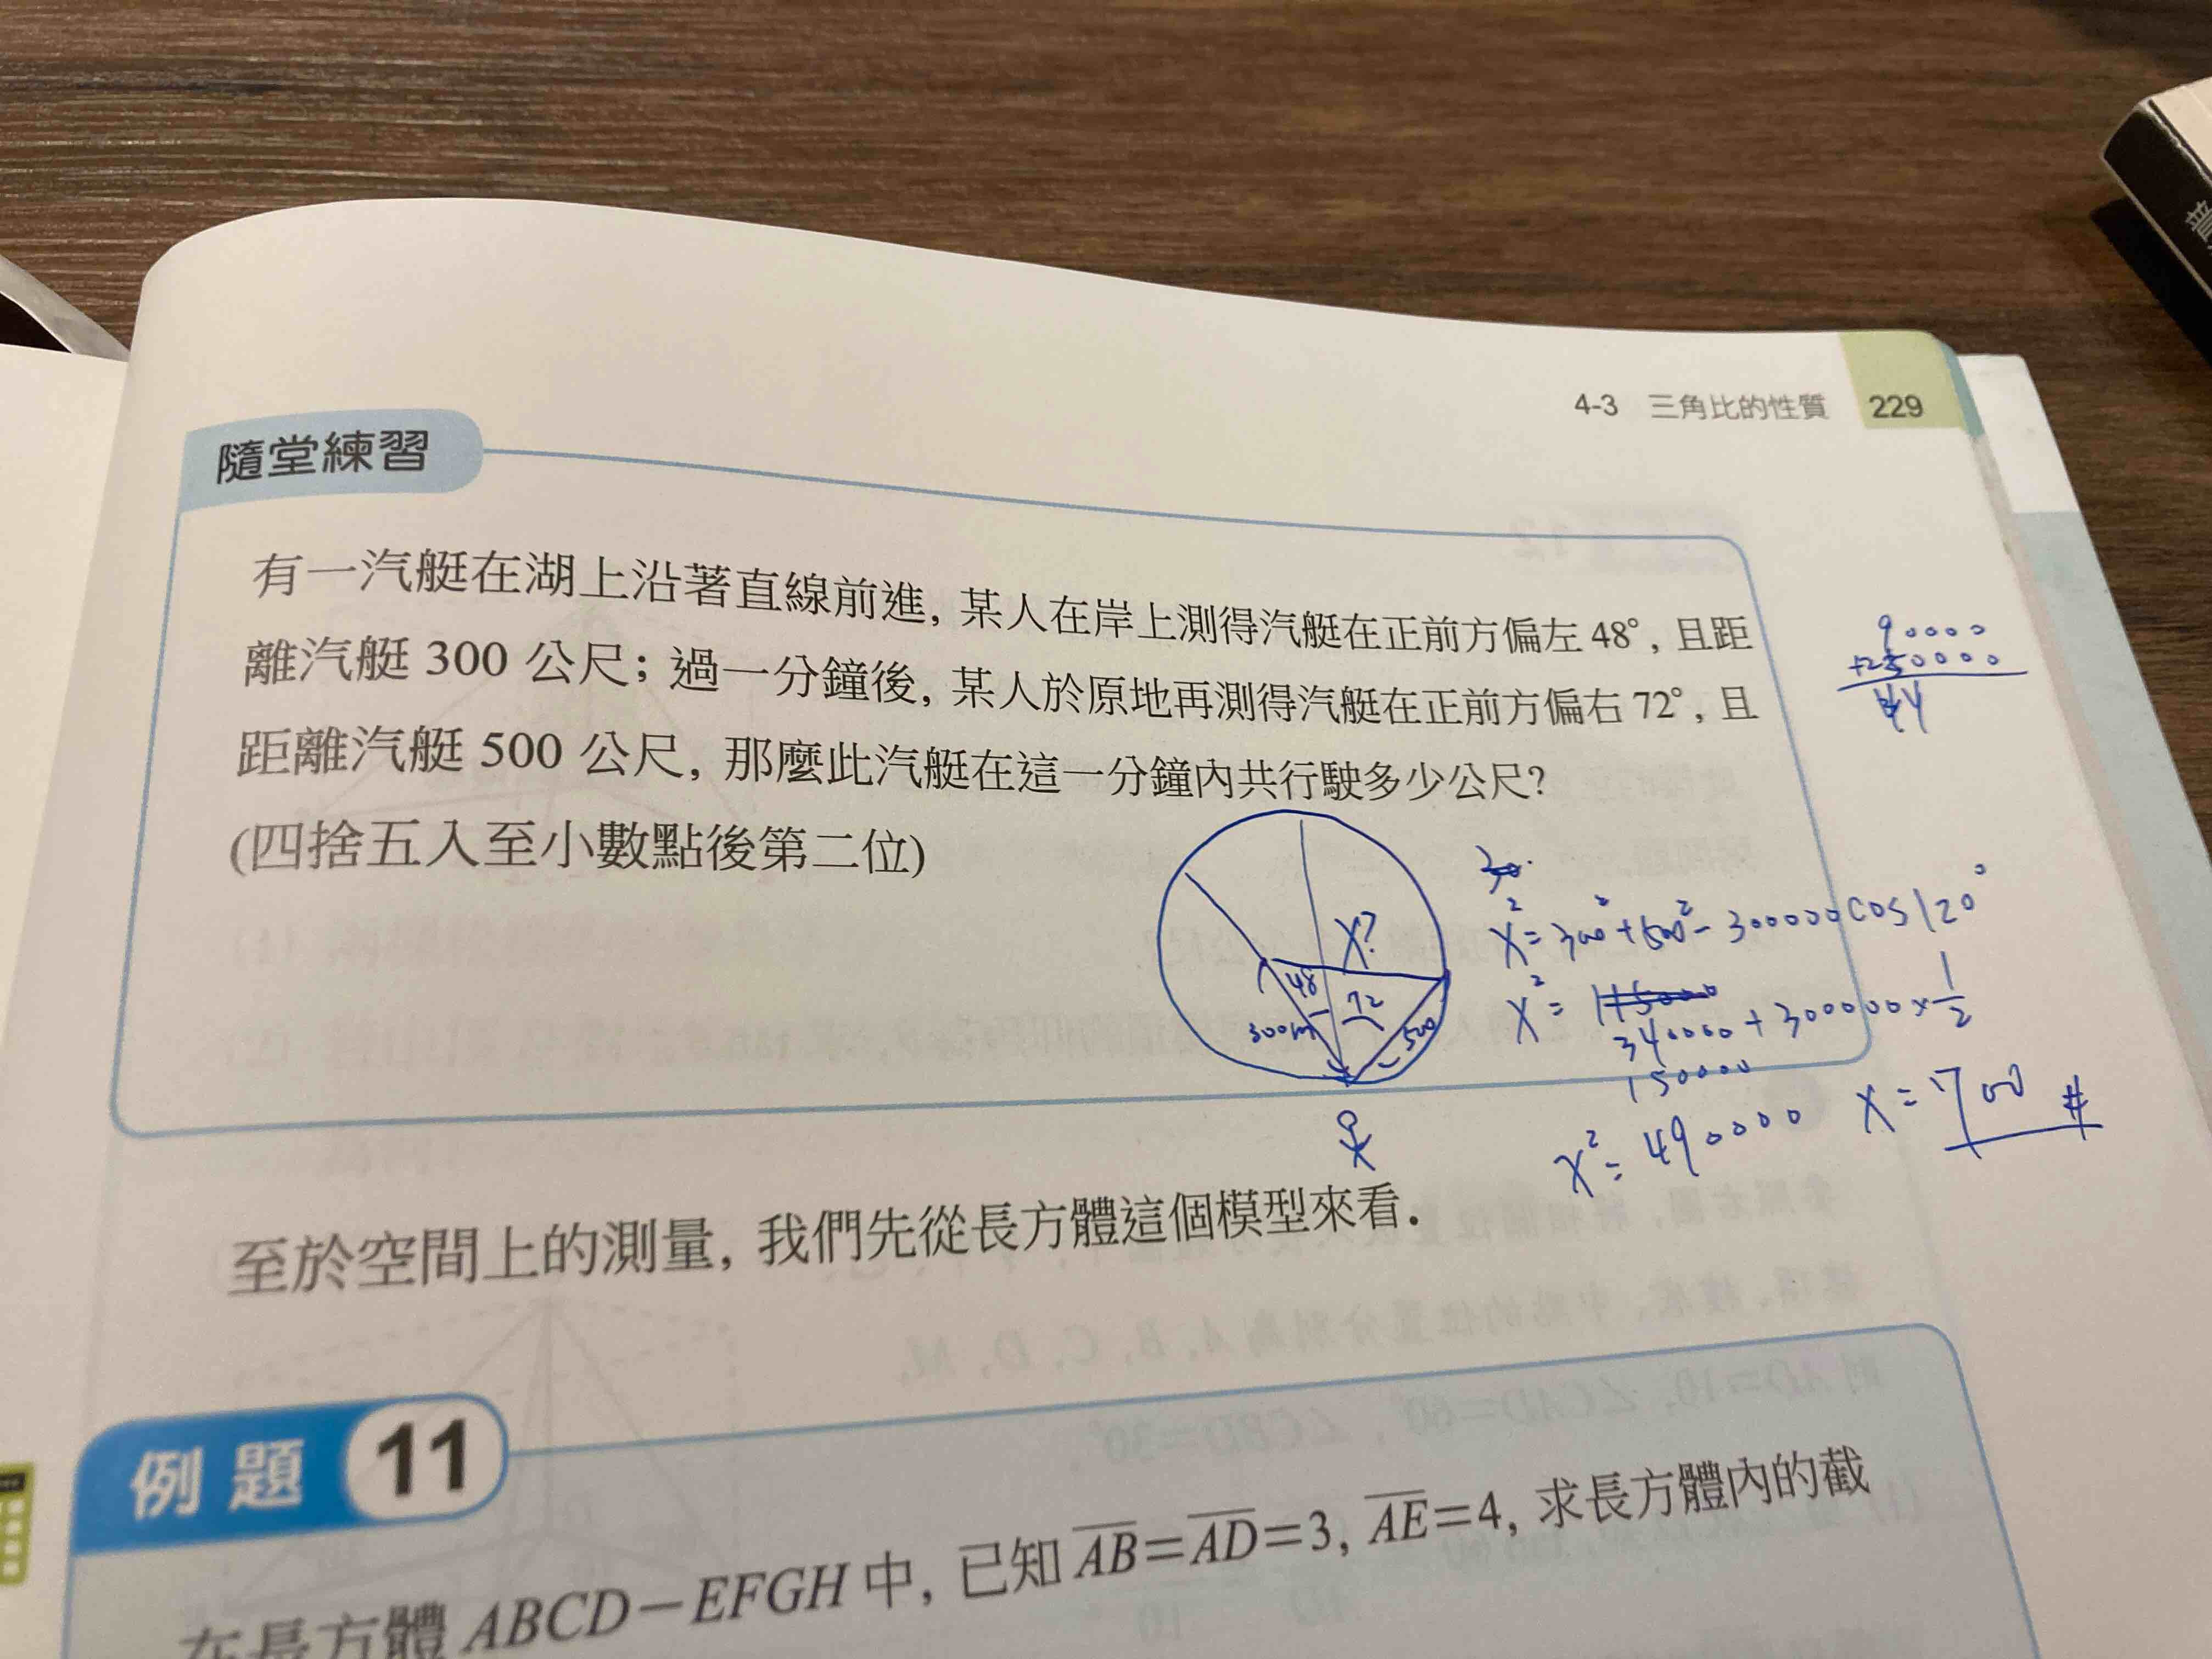 4-3 三角比的性質 229
隨堂練習
有一汽艇在湖上沿著直線前進, 某人在岸上測得汽艇在正前方偏左 48°, 且距
離汽艇 300 公尺; 過一分鐘後, 某人於原地再測得汽艇在正前方偏右 72°, 且
距離汽艇 500 公尺, 那麼此汽艇在這一分鐘內共行駛多少公尺?
(四捨五入至小數點後第二位)
90000
+250000
X?
48
72
300m
500
X²=300²+500²-300000cos120°
X²=
340000+300000×1/2
150000
X²=490000
X=700 #
至於空間上的測量, 我們先從長方體這個模型來看.
例題 11
在長方體 ABCD-EFGH 中, 已知 A̅B̅=A̅D̅=3, A̅E̅=4, 求長方體內的截